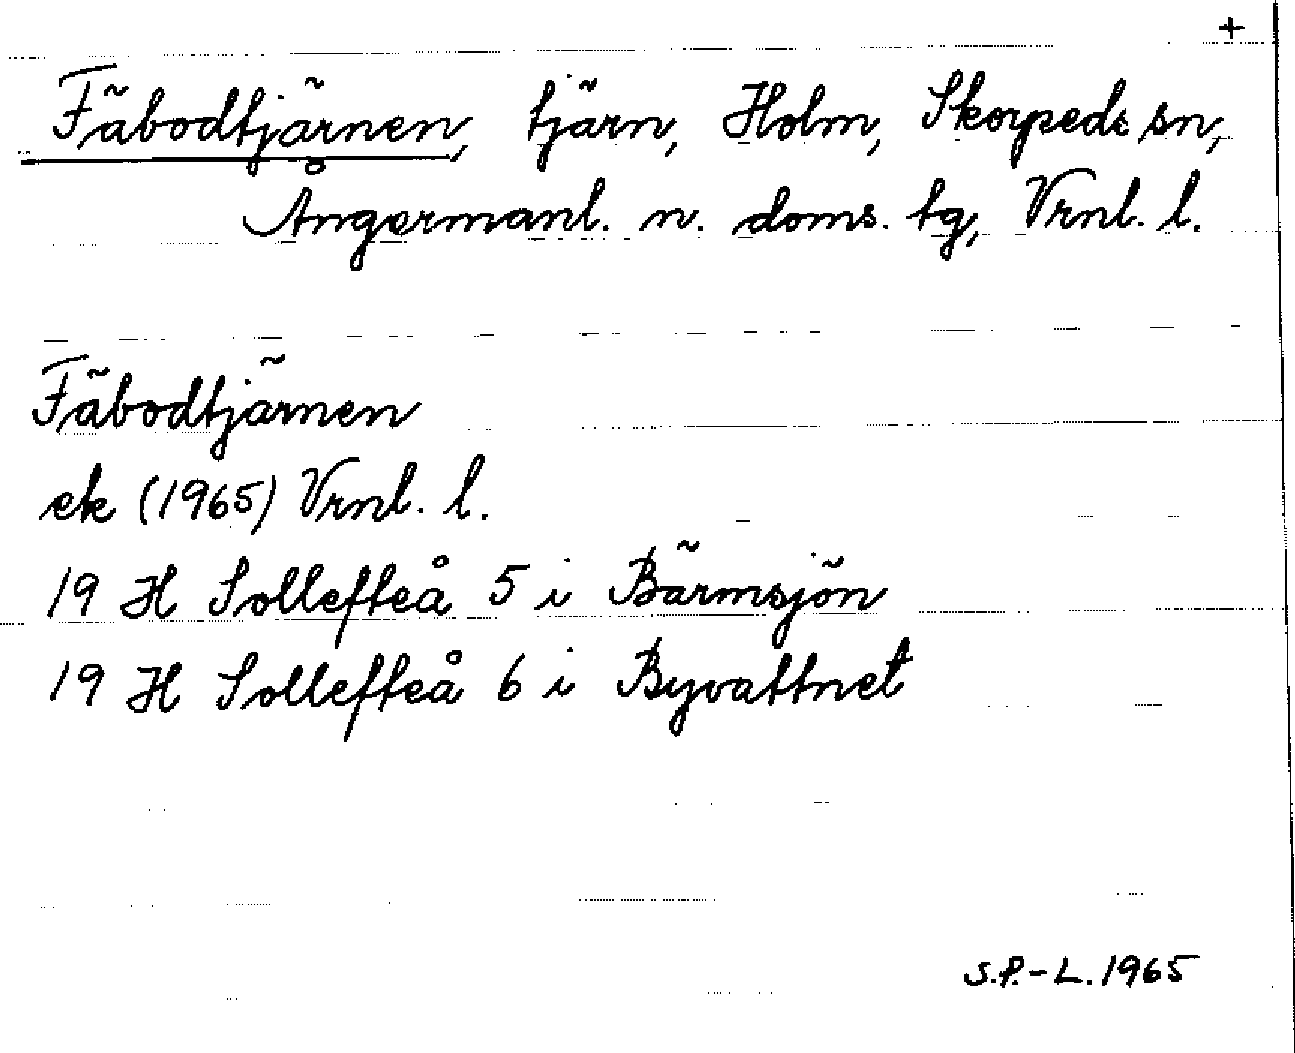 +
Fäbodtjärnen, tjärn, Holm, Skorpeds sn,
Ångermanl. n. doms. tg, Vrnl. l.
Fäbodtjärnen
ek (1965) Vrnl. l.
19 H Sollefteå 5 i Bärmsjön
19 H Sollefteå 6 i Byvattnet
S.P.-L. 1965